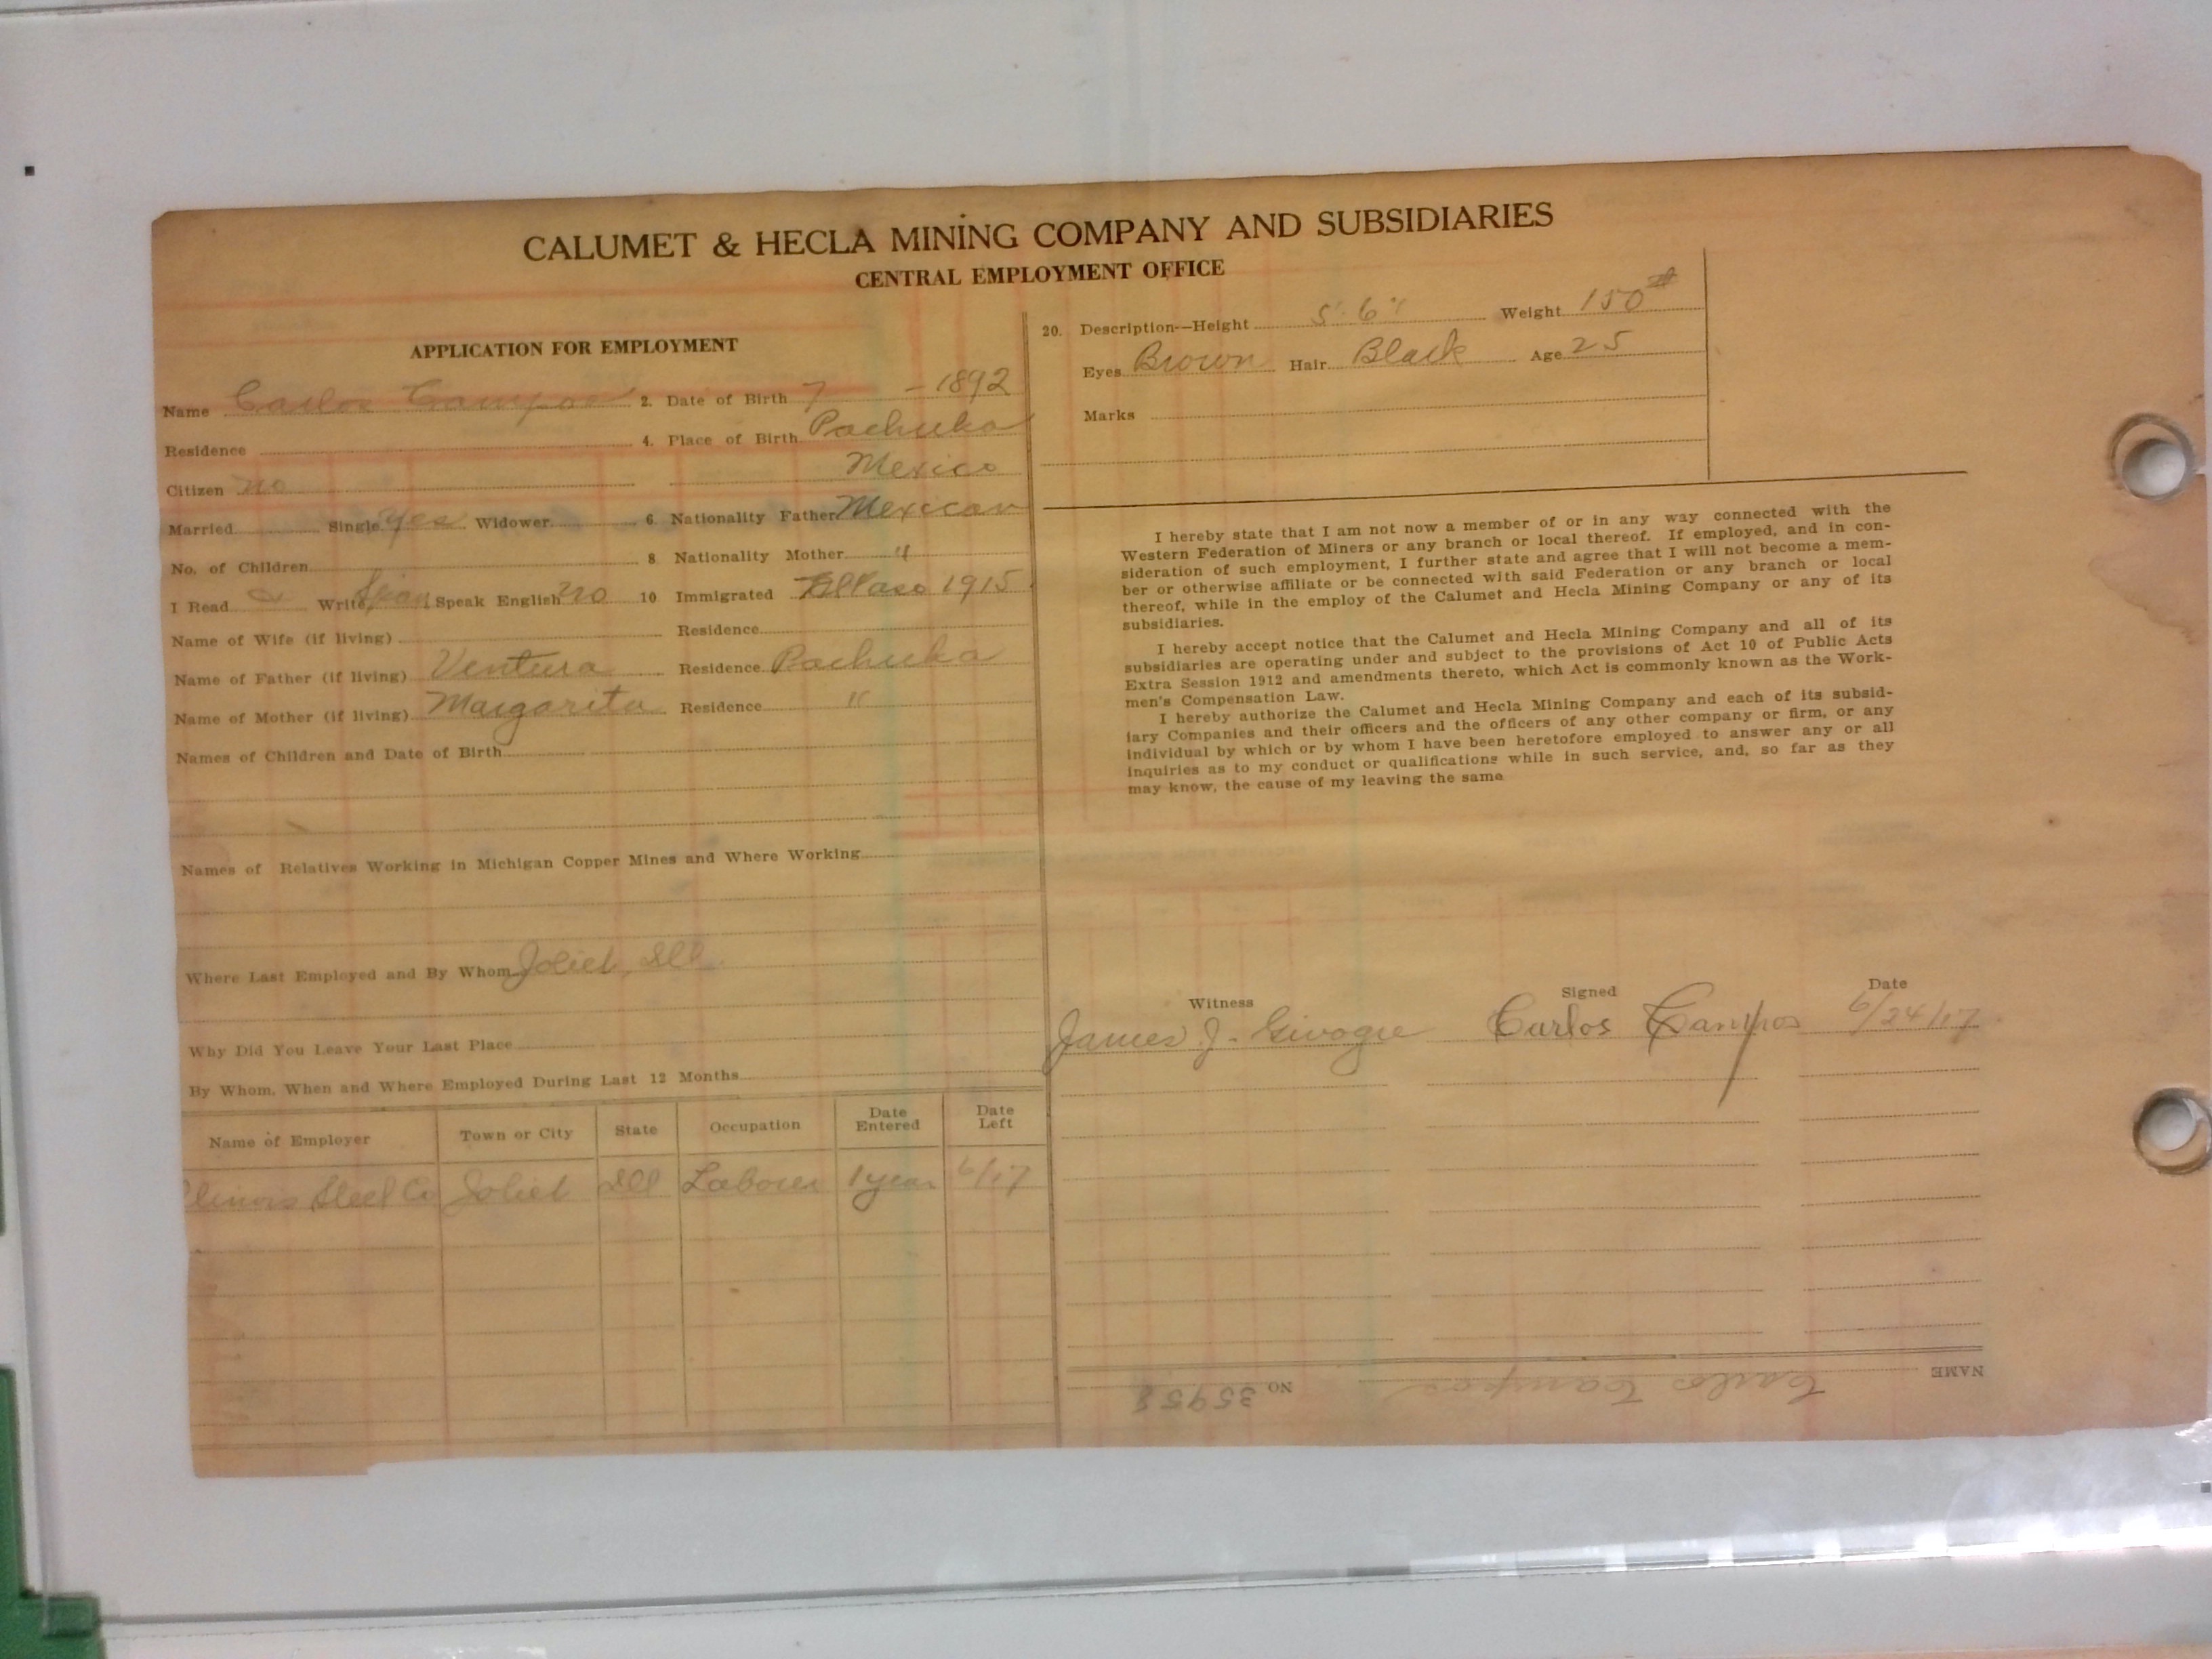 CALUMET & HECLA MINING COMPANY AND SUBSIDIARIES
CENTRAL EMPLOYMENT OFFICE
APPLICATION FOR EMPLOYMENT
Name Carlos Campos 2. Date of Birth 7 - 1892
Residence 4. Place of Birth Pachuka
Citizen no Mexico
Married Single yes Widower 6. Nationality Father Mexican
No. of Children 8 Nationality Mother "
I Read Write Span Speak English no 10 Immigrated El Paso 1915
Name of Wife (if living) Residence
Name of Father (if living) Ventura Residence Pachuka
Name of Mother (if living) Margarita Residence "
Names of Children and Date of Birth
Names of Relatives Working in Michigan Copper Mines and Where Working
Where Last Employed and By Whom Joliet, Ill.
Why Did You Leave Your Last Place
By Whom, When and Where Employed During Last 12 Months
Name of Employer Town or City State Occupation Date Entered Date Left
Illinois Steel Co Joliet Ill Laborer 1 year 6/17
20. Description--Height 5' 6" Weight 150#
Eyes Brown Hair Black Age 25
Marks
I hereby state that I am not now a member of or in any way connected with the
Western Federation of Miners or any branch or local thereof. If employed, and in con-
sideration of such employment, I further state and agree that I will not become a mem-
ber or otherwise affiliate or be connected with said Federation or any branch or local
thereof, while in the employ of the Calumet and Hecla Mining Company or any of its
subsidiaries.
I hereby accept notice that the Calumet and Hecla Mining Company and all of its
subsidiaries are operating under and subject to the provisions of Act 10 of Public Acts
Extra Session 1912 and amendments thereto, which Act is commonly known as the Work-
men's Compensation Law.
I hereby authorize the Calumet and Hecla Mining Company and each of its subsid-
iary Companies and their officers and the officers of any other company or firm, or any
individual by which or by whom I have been heretofore employed to answer any or all
inquiries as to my conduct or qualifications while in such service, and, so far as they
may know, the cause of my leaving the same
Witness Signed Date
James J. Givogre Carlos Campos 6/24/17
NAME Carlos Campos NO 35958